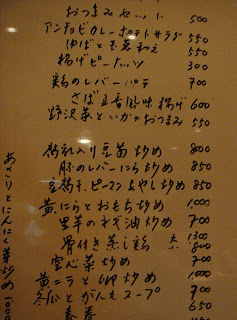 おつまみセット 500
アンチョビカレーポテトサラダ 550
ゆばと 和え 550
揚げピーナッツ 300
鶏のレバーパテ 700
さば五香風味揚げ 600
野沢菜といかのおつまみ 550
腐乳入り豆苗炒め 800
豚のレバーにら炒め 850
豆腐干、ピーマンもやし炒め 850
黄にらとおもち炒め 1,000
里芋のネギ油炒め 700
骨付き蒸し鶏
空心菜炒め 700
黄ニラと 炒め 1,000
冬瓜とがんもスープ 700
春巻 650
あさりとにんにく芽炒め 1000